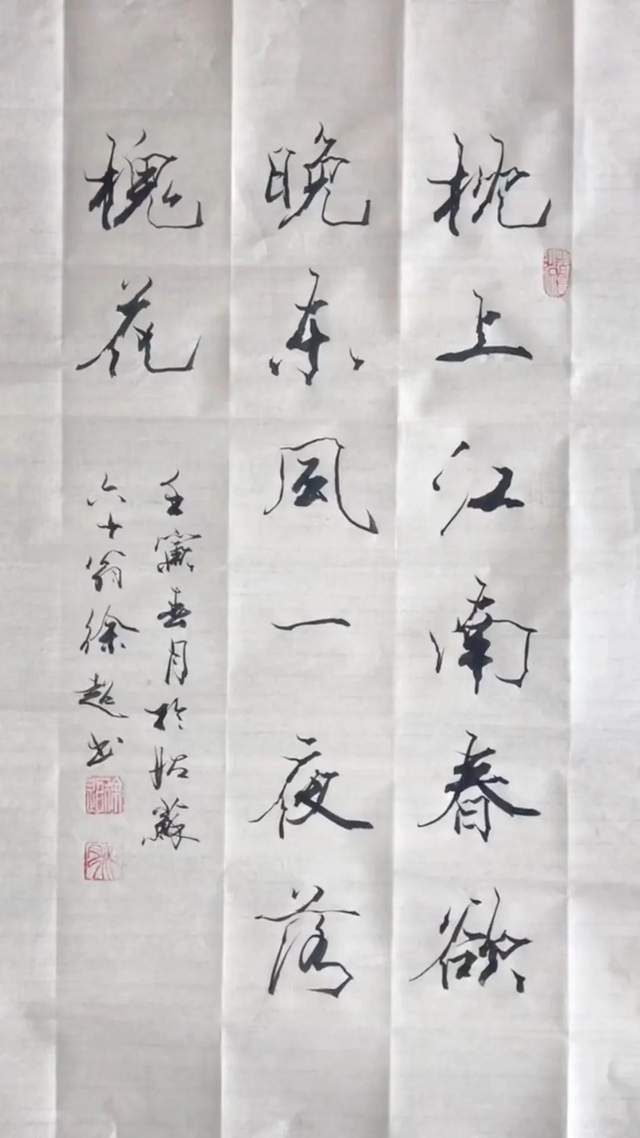 枕上江南春欲
晚东風一夜落
槐花
壬寅春月於姑蘇
六十翁徐超书